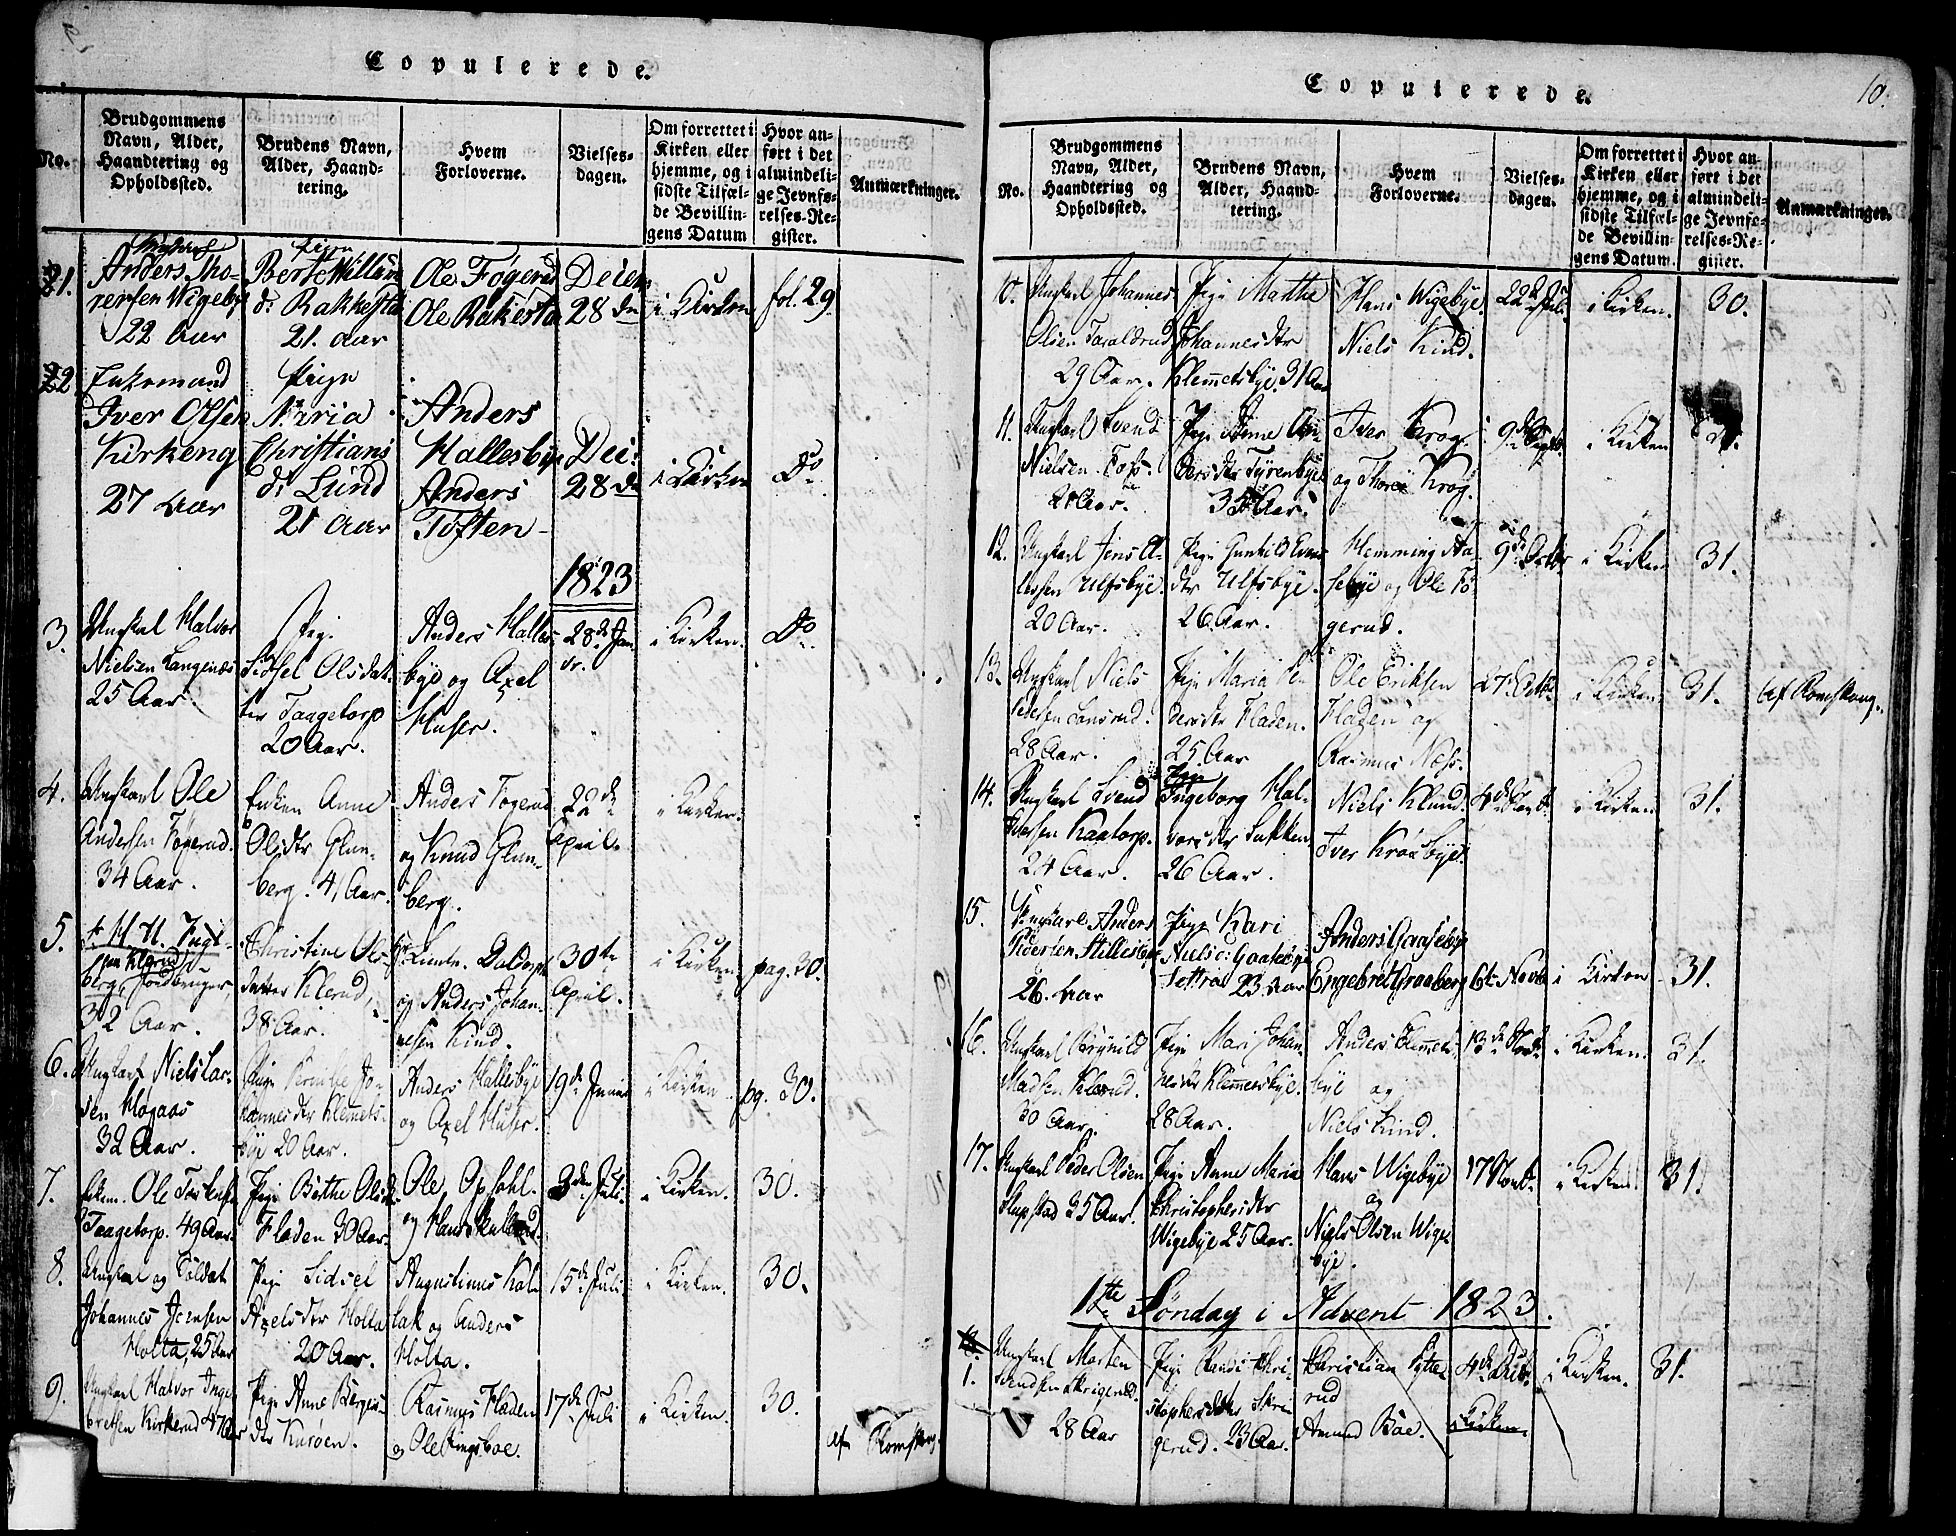 Copulerede.
No.
Brudgommens Navn, Alder, Haandtering og Opholdssted.
Brudens Navn, Alder, Haandtering.
Hvem Forloverne.
Vielses-dagen.
Om forrettet i Kirken eller hjemme, og i sidste Tilfælde Bevillingens Datum
Hvor anført i det almindelige Jevnførelses-Register.
Anmærkninger.
21.
Anders Tho-
resen Wigebye
22 Aar
Pigen
Berte Willum
d: Rakkestad
21. Aar
Ole Fögerud
Ole Rakestad
Decem
28 de
i Kirken
fol. 29.
22.
Enkemand
Iver Olsen
Kirkeng
27 Aar
Pige
Maria
Christians
d: Lund
21 Aar
Anders
Hallesbye
Anders
Toften
Dec:
28 de
i Kirken
Do
1823
3.
Ungkarl Halvor
Nielsen Langenæs
25 Aar
Pige
Sidsel Olsdat-
ter Taagetorp
20 Aar.
Anders Halles-
bye og Axel
Huser.
28de Jan
vr.
i Kirken.
Do
4.
Ungkarl Ole
Andersen Fögerud.
34 Aar.
Enken Anne
Olsdtr Glen-
berg. 41 Aar.
Anders Fögerud
og Knud Glen-
berg.
22de
April
i Kirken.
5.
berg, Jordbruger,
32 Aar.
Christine Ols-
datter Klerud,
38 Aar.
Lieutn. Daldorph
og Anders Johan-
nesen Kind.
30te
April.
i Kirken
pag. 30.
6.
Ungkarl Niels Lar-
sen Högaas
32 Aar.
Pige Pernille Jo-
hannesdtr Klemets-
bye 20 Aar.
Anders Hallesbye
og Axel Huser.
19de Junii
i Kirken
pg. 30.
7.
Enkem. Ole Torstensen
Taagetorp. 49 Aar.
Pige Berthe Olsdtr
Fladen 30 Aar.
Ole Opsahl.
og Hans
3den Juli.
i Kirken.
30.
8.
Ungkarl og Soldat
Johannes Jensen
Holta, 25 Aar
Pige Sidsel
Axelsdtr Holta
20 Aar.
Augustinus Kol-
lak og Anders
Holta.
15de Juli
i Kirken.
30.
9.
Ungkarl Halvor Inge-
bretsen Kirkerud
Pige Anne
dtr Kuröen.
Rasmus Fladen
og Ole Tingsboe.
17de Juli
i Kirken.
30.
Copulerede.
10.
No.
Brudgommens Navn, Alder, Haandtering og Opholdssted.
Brudens Navn, Alder, Haandtering.
Hvem Forloverne.
Vielses-dagen.
Om forrettet i Kirken eller hjemme, og i sidste Tilfælde Bevillingens Datum.
Hvor anført i det almindelige Jevnførelses-Register.
Anmærkninger.
10.
Ungkarl Johannes
Olsen Taraldrud
29 Aar.
Pige Marthe
Johannesdtr
Klemetsbye 31 Aar
Hans Wigebye.
Niels Kind.
22de Juli.
i Kirken.
30.
11.
Ungkarl Svend
Nielsen Foss.
Pige Anne An-
dersdtr Tyrenbye
35 Aar.
Iver Krog.
og Thore Krog.
9de Septbr.
i Kirken
12.
Ungkarl Jens
Ulfsbye.
20 Aar.
Pige Gunhild Evens
dtr Ulfsbye.
26 Aar.
Hemming Aa-
sebye og Ole Fö-
gerud.
9de Octbr
i Kirken
31.
13.
Ungkarl Niels
Pedersen
28 Aar.
Pige Maria Pe-
dersdtr Fladen.
25 Aar
Ole Eriksen
Fladen og
Rasmus Næss.
27de Octbr.
i Kirken
31.
Af Römskoug.
14.
Ungkarl Svend
Iversen Kaatorp.
24 Aar.
Pige
Ingeborg Hal-
vorsdtr Sukken
26 Aar.
Niels Klund.
Iver Kroxbye
i Kirken.
31.
15.
Ungkarl Anders
Pedersen Hillesbye
26. Aar
Pige Kari
Niels d: Gaatebye
Settra 23 Aar
Anders Gaasebye
Engebret Graaberg
6te Novbr
i Kirken
31.
16.
Ungkarl Brynild
Madsen Klerud.
30 Aar.
Pige Mari Johan-
nesdtr Klemetsbye.
28 Aar.
Anders Klemets-
bye og
Niels Kind.
13de Novbr.
i Kirken.
31.
17.
Ungkarl Peder Olsen
Slupstad 35 Aar.
Pige Anne Maria
Christophersdtr
Wigebye 25 Aar.
Hans Wigebye
og
Niels Olsen Wige-
bye.
17 Novbr
i Kirken.
31.
1te Söndag i Advent 1823.
1.
Ungkarl Morten
Svendsen Skrigerud.
28 Aar
Pige Randi Chri-
stophersdtr Skri-
gerud. 23 Aar.
Christian
rud
Amund Böe.
4de Decbr.
i Kirken.
31.